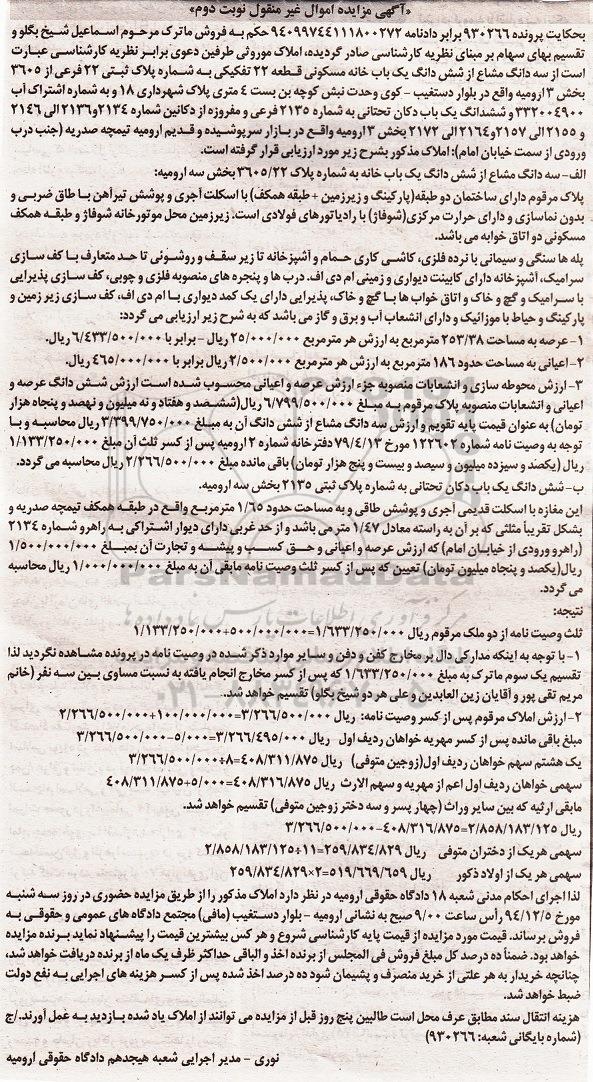 «آگهی مزایده اموال غیر منقول نوبت دوم»
بحکایت پرونده ۹۳۰۲۶۶ برابر دادنامه ۹۴۰۹۹۷۴۴۱۱۱۸۰۰۲۷۲ حکم به فروش ماترک مرحوم اسماعیل شیخ بگلو و
تقسیم بهای سهام بر مبنای نظریه کارشناسی صادر گردیده، املاک موروثی طرفین دعوی برابر نظریه کارشناسی عبارت
است از سه دانگ مشاع از شش دانگ یک باب خانه مسکونی قطعه ۲۲ تفکیکی به شماره پلاک ثبتی ۲۲ فرعی از ۳۶۰۵
بخش ۳ ارومیه واقع در بلوار دستغیب - کوی وحدت نبش کوچه بن بست ۴ متری پلاک شهرداری ۱۸ و به شماره اشتراک آب
۳۳۲۰۰۴۹۰۰ و ششدانگ یک باب دکان تحتانی به شماره ۲۱۳۵ فرعی و مفروزه از دکانین شماره ۲۱۳۴و۲۱۳۶ الی ۲۱۴۶
و ۲۱۵۵ الی ۲۱۵۷و۲۱۶۴ الی ۲۱۷۲ بخش ۳ ارومیه واقع در بازار سرپوشیده و قدیم ارومیه تیمچه صدریه (جنب درب
ورودی از سمت خیابان امام): املاک مذکور بشرح زیر مورد ارزیابی قرار گرفته است.
الف- سه دانگ مشاع از شش دانگ یک باب خانه به شماره پلاک ۳۶۰۵/۲۲ بخش سه ارومیه:
پلاک مرقوم دارای ساختمان دو طبقه(پارکینگ و زیرزمین + طبقه همکف) با اسکلت آجری و پوشش تیرآهن با طاق ضربی و
بدون نماسازی و دارای حرارت مرکزی(شوفاژ) با رادیاتورهای فولادی است. زیرزمین محل موتورخانه شوفاژ و طبقه همکف
مسکونی دو اتاق خوابه می باشد.
پله ها سنگی و سیمانی با نرده فلزی، کاشی کاری حمام و آشپزخانه تا زیر سقف و روشوئی تا حد متعارف با کف سازی
سرامیک، آشپزخانه دارای کابینت دیواری و زمینی ام دی اف. درب ها و پنجره های منصوبه فلزی و چوبی، کف سازی پذیرایی
با سرامیک و گچ و خاک و اتاق خواب ها با گچ و خاک، پذیرایی دارای یک کمد دیواری با ام دی اف، کف سازی زیر زمین و
پارکینگ و حیاط با موزائیک و دارای انشعاب آب و برق و گاز می باشد که به شرح زیر ارزیابی می گردد:
۱- عرصه به مساحت ۲۵۳/۳۸ مترمربع به ارزش هر مترمربع ۲۵/۰۰۰/۰۰۰ ریال - برابر با ۶/۴۳۳/۵۰۰/۰۰۰ ریال.
۲- اعیانی به مساحت حدود ۱۸۶ مترمربع به ارزش هر مترمربع ۲/۵۰۰/۰۰۰ ریال برابر با ۴۶۵/۰۰۰/۰۰۰ ریال.
۳- ارزش محوطه سازی و انشعابات منصوبه جزء ارزش عرصه و اعیانی محسوب شده است ارزش شش دانگ عرصه و
اعیانی و انشعابات منصوبه پلاک مرقوم به مبلغ ۶/۷۹۹/۵۰۰/۰۰۰ ریال(ششصد و هفتاد و نه میلیون و نهصد و پنجاه هزار
تومان) به عنوان قیمت پایه تقویم و ارزش سه دانگ مشاع از شش دانگ آن به مبلغ ۳/۳۹۹/۷۵۰/۰۰۰ ریال محاسبه و با
توجه به وصیت نامه شماره ۱۲۲۶۰۲ مورخ ۷۹/۴/۱۳ دفترخانه شماره ۲ ارومیه پس از کسر ثلث آن مبلغ ۱/۱۳۳/۲۵۰/۰۰۰
ریال (یکصد و سیزده میلیون و سیصد و بیست و پنج هزار تومان) باقی مانده مبلغ ۲/۲۶۶/۵۰۰/۰۰۰ ریال محاسبه می گردد.
ب- شش دانگ یک باب دکان تحتانی به شماره پلاک ثبتی ۲۱۳۵ بخش سه ارومیه.
این مغازه با اسکلت قدیمی آجری و پوشش طاقی و به مساحت حدود ۱/۶۵ مترمربع واقع در طبقه همکف تیمچه صدریه و
بشکل تقریباً مثلثی که بر آن به راسته معادل ۱/۴۷ متر می باشد و از حد غربی دارای دیوار اشتراکی به راهرو شماره ۲۱۳۴
(راهرو ورودی از خیابان امام) که ارزش عرصه و اعیانی و حق کسب و پیشه و تجارت آن بمبلغ ۱/۵۰۰/۰۰۰/۰۰۰
ریال(یکصد و پنجاه میلیون تومان) تعیین که پس از کسر ثلث وصیت نامه مابقی آن به مبلغ ۱/۰۰۰/۰۰۰/۰۰۰ ریال محاسبه
می گردد.
نتیجه:
ثلث وصیت نامه از دو ملک مرقوم ریال ۱/۶۳۳/۲۵۰/۰۰۰=۵۰۰/۰۰۰/۰۰۰+۱/۱۳۳/۲۵۰/۰۰۰
۱- با توجه به اینکه مدارکی دال بر مخارج کفن و دفن و سایر موارد ذکر شده در وصیت نامه در پرونده مشاهده نگردید لذا
تقسیم یک سوم ماترک به مبلغ ۱/۶۳۳/۲۵۰/۰۰۰ که پس از کسر مخارج انجام یافته به نسبت مساوی بین سه نفر (خانم
مریم تقی پور و آقایان زین العابدین و علی هر دو شیخ بگلو) تقسیم خواهد شد.
۲- ارزش املاک مرقوم پس از کسر وصیت نامه: ریال ۳/۲۶۶/۵۰۰/۰۰۰=۱۰۰/۰۰۰/۰۰۰+۲/۲۶۶/۵۰۰/۰۰۰
مبلغ باقی مانده پس از کسر مهریه خواهان ردیف اول ریال ۳/۲۶۶/۴۹۵/۰۰۰=۵/۰۰۰-۳/۲۶۶/۵۰۰/۰۰۰
یک هشتم سهم خواهان ردیف اول(زوجین متوفی) ریال ۴۰۸/۳۱۱/۸۷۵=۸÷۳/۲۶۶/۵۰۰/۰۰۰
سهمی خواهان ردیف اول اعم از مهریه و سهم الارث ریال ۴۰۸/۳۱۶/۸۷۵=۵/۰۰۰+۴۰۸/۳۱۱/۸۷۵
مابقی ارثیه که بین سایر وراث (چهار پسر و سه دختر زوجین متوفی) تقسیم خواهد شد.
ریال ۲/۸۵۸/۱۸۳/۱۲۵=۴۰۸/۳۱۶/۸۷۵-۳/۲۶۶/۵۰۰/۰۰۰
سهمی هر یک از دختران متوفی ریال ۲۵۹/۸۳۴/۸۲۹=۱۱÷۲/۸۵۸/۱۸۳/۱۲۵
سهمی هر یک از اولاد ذکور ریال ۵۱۹/۶۶۹/۶۵۹=۲×۲۵۹/۸۳۴/۸۲۹
لذا اجرای احکام مدنی شعبه ۱۸ دادگاه حقوقی ارومیه در نظر دارد املاک مذکور را از طریق مزایده حضوری در روز سه شنبه
مورخ ۹۴/۱۲/۵ رأس ساعت ۹/۰۰ صبح به نشانی ارومیه - بلوار دستغیب (مافی) مجتمع دادگاه های عمومی و حقوقی به
فروش برساند. قیمت مورد مزایده از قیمت پایه کارشناسی شروع و هر کس بیشترین قیمت را پیشنهاد نماید برنده مزایده
خواهد بود. ضمناً ده درصد کل مبلغ فروش فی المجلس از برنده اخذ و الباقی حداکثر ظرف یک ماه از برنده دریافت خواهد شد،
چنانچه خریدار به هر علتی از خرید منصرف و پشیمان شود ده درصد اخذ شده پس از کسر هزینه های اجرایی به نفع دولت
ضبط خواهد شد.
هزینه انتقال سند مطابق عرف محل است طالبین پنج روز قبل از مزایده می توانند از املاک یاد شده بازدید به عمل آورند./ج
(شماره بایگانی شعبه: ۹۳۰۲۶۶)
نوری - مدیر اجرایی شعبه هیجدهم دادگاه حقوقی ارومیه